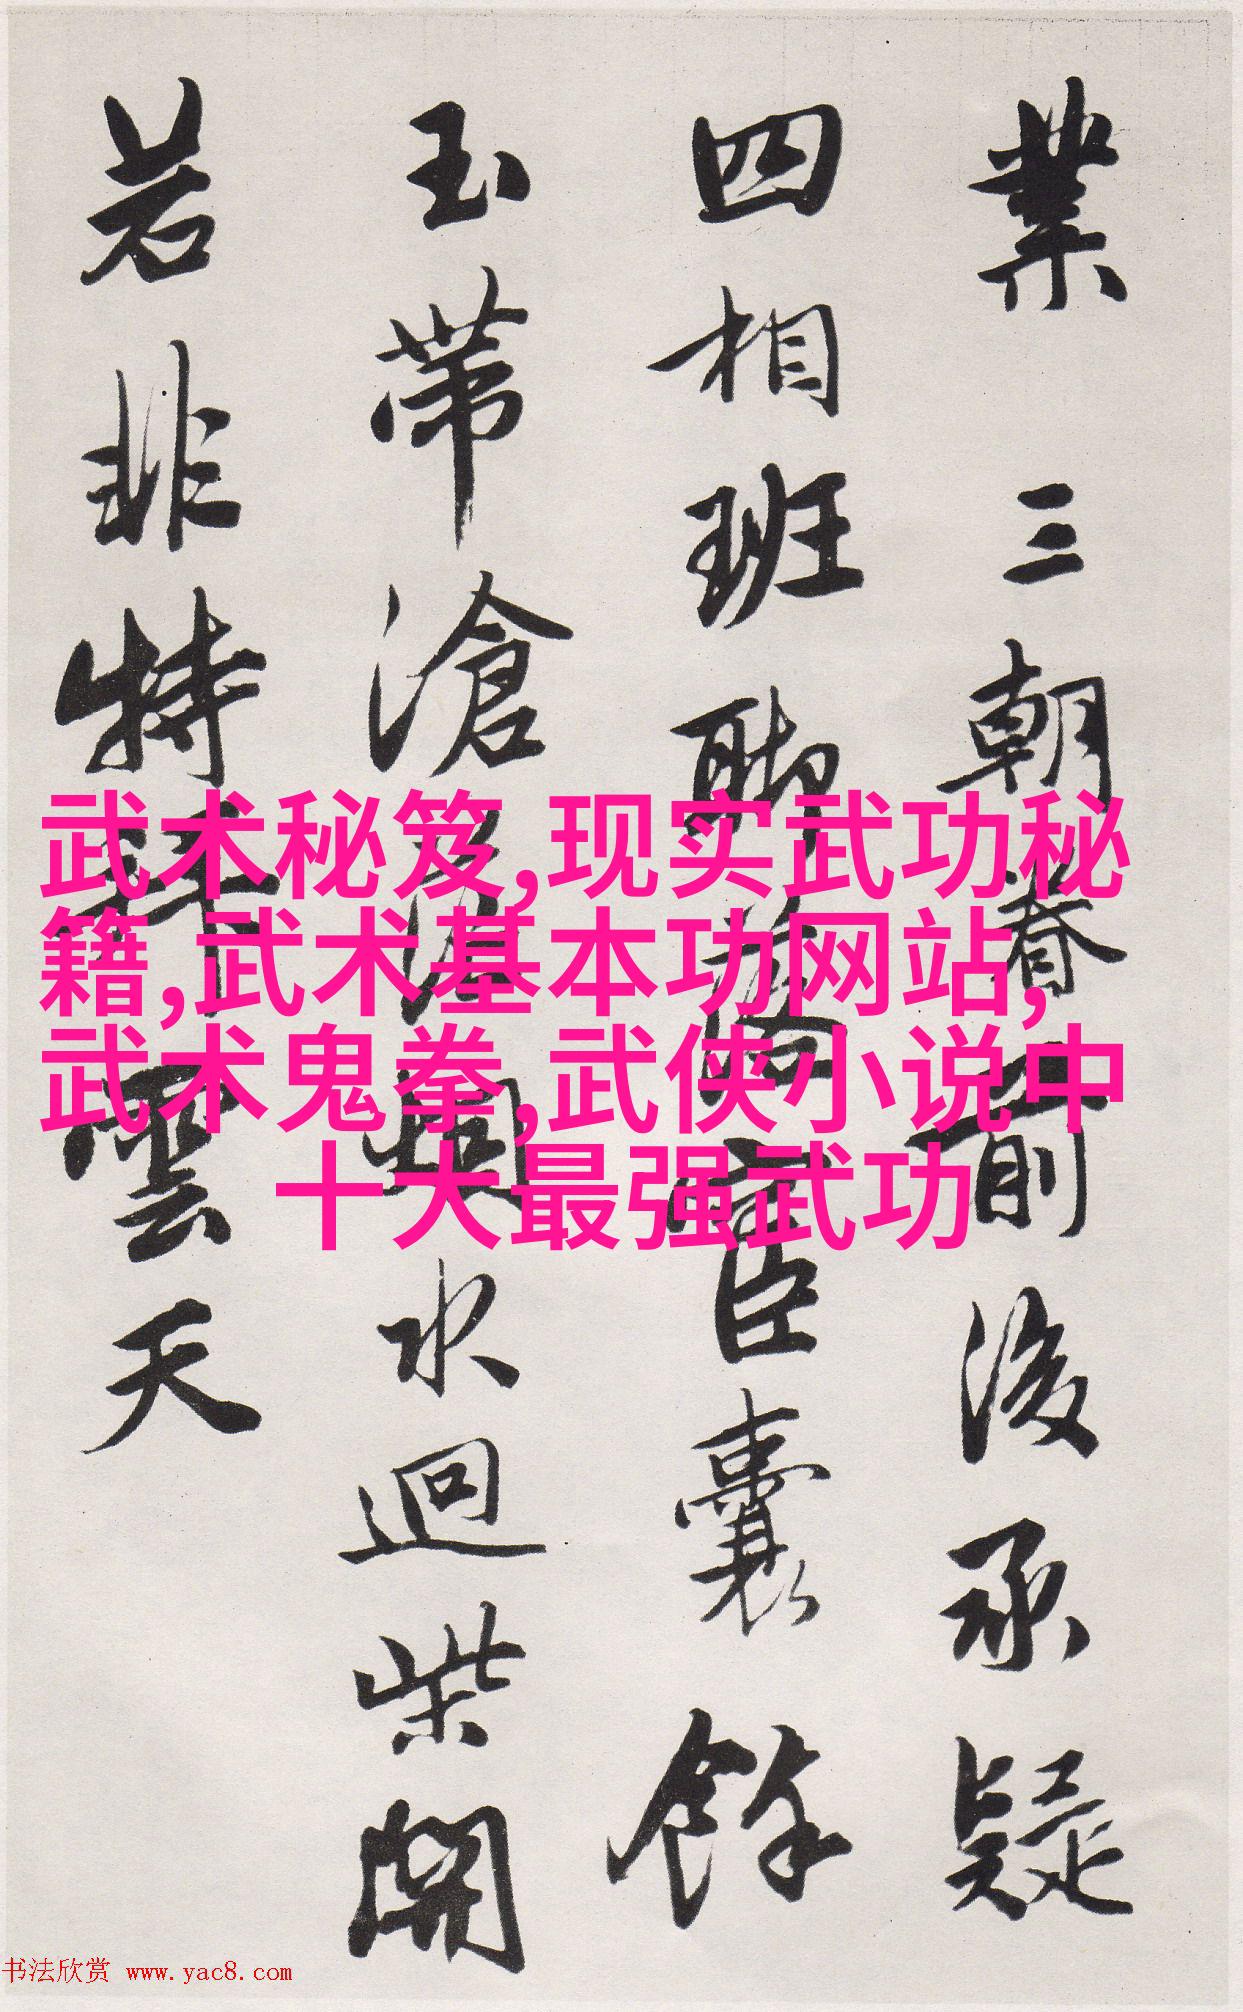 業三朝前後承疑
四相班囊餘
玉帶滄水迴柴開
若非特拜雲天
武术秘笈,现实武功秘
籍,武术基本功网站,
武术鬼拳,武侠小说中
十大最强武功
书法欣赏 www.yac8.com